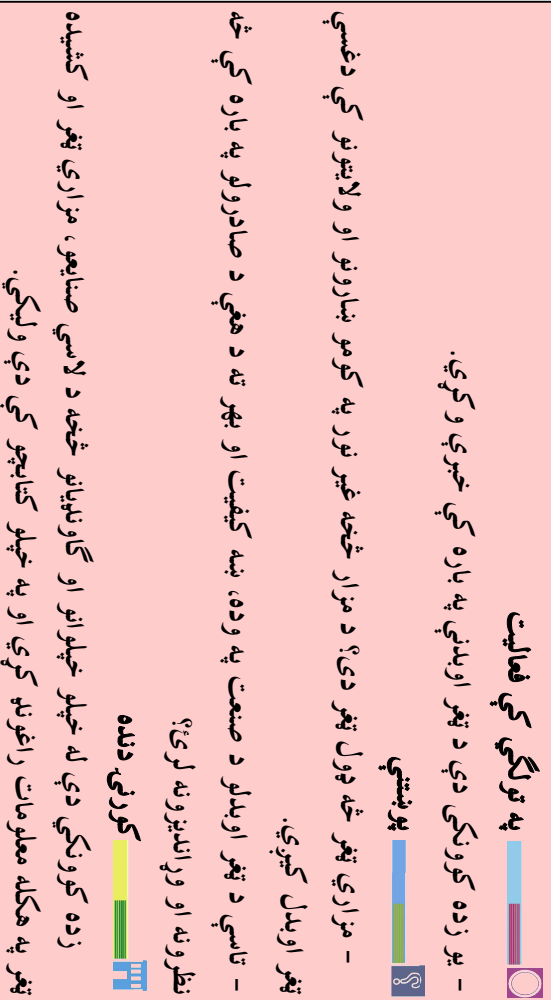 په ټولګي کې فعالیت
- یو زده کوونکی دې د ټغر اوبدنې په باره کې خبرې وکړي.
پوښتنې
- مزاري ټغر څه ډول ټغر دی؟ د مزار څخه غیر نور په کومو ښارونو او ولایتونو کې دغسې
ټغر اوبدل کیږي.
- تاسې د ټغر اوبدلو د صنعت په وده، ښه کیفیت او بهر ته د هغې د صادرولو په باره کې څه
نظرونه او وړاندیزونه لرئ؟
کورنۍ دنده
زده کوونکي دې له خپلو خپلوانو او ګاونډیانو څخه د لاسي صنایعو، مزاري ټغر او کشیده
ټغر په هکله معلومات راغونډ کړي او په خپلو کتابچو کې دې ولیکي.